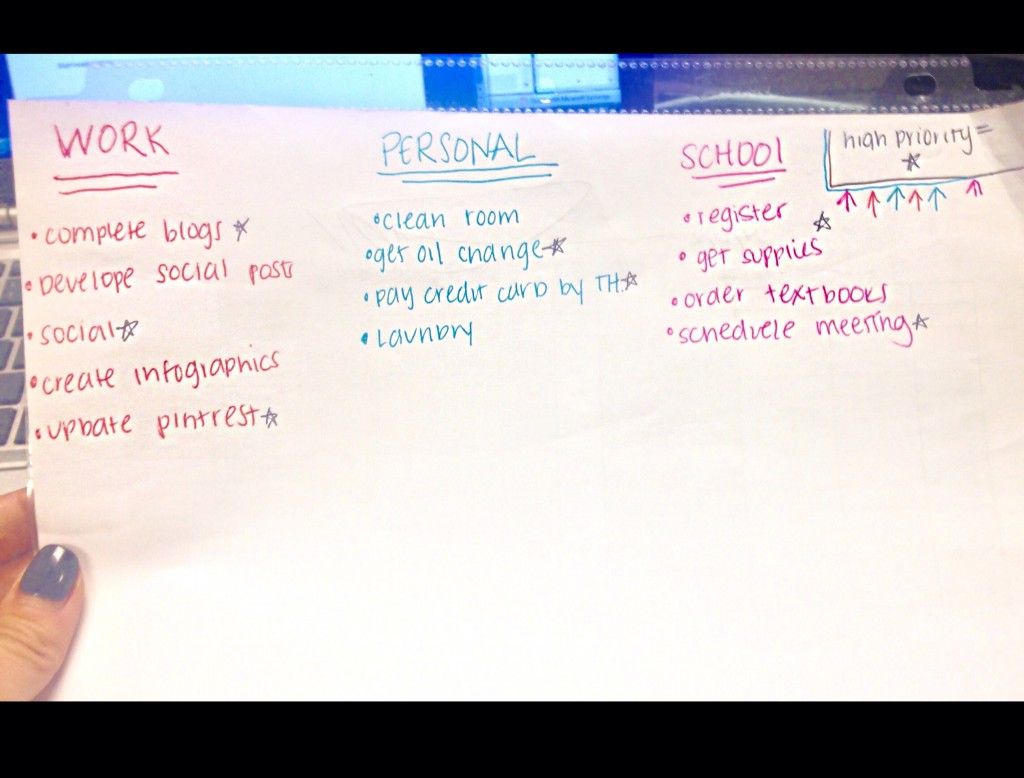 WORK
• complete blogs ☆
• Develope social posts
• social ☆
• create infographics
• update pintrest ☆
PERSONAL
• clean room
• get oil change ☆
• pay credit card by TH. ☆
• Laundry
SCHOOL
• register ☆
• get supplies
• order textbooks
• schedule meeting ☆
high priority =
☆